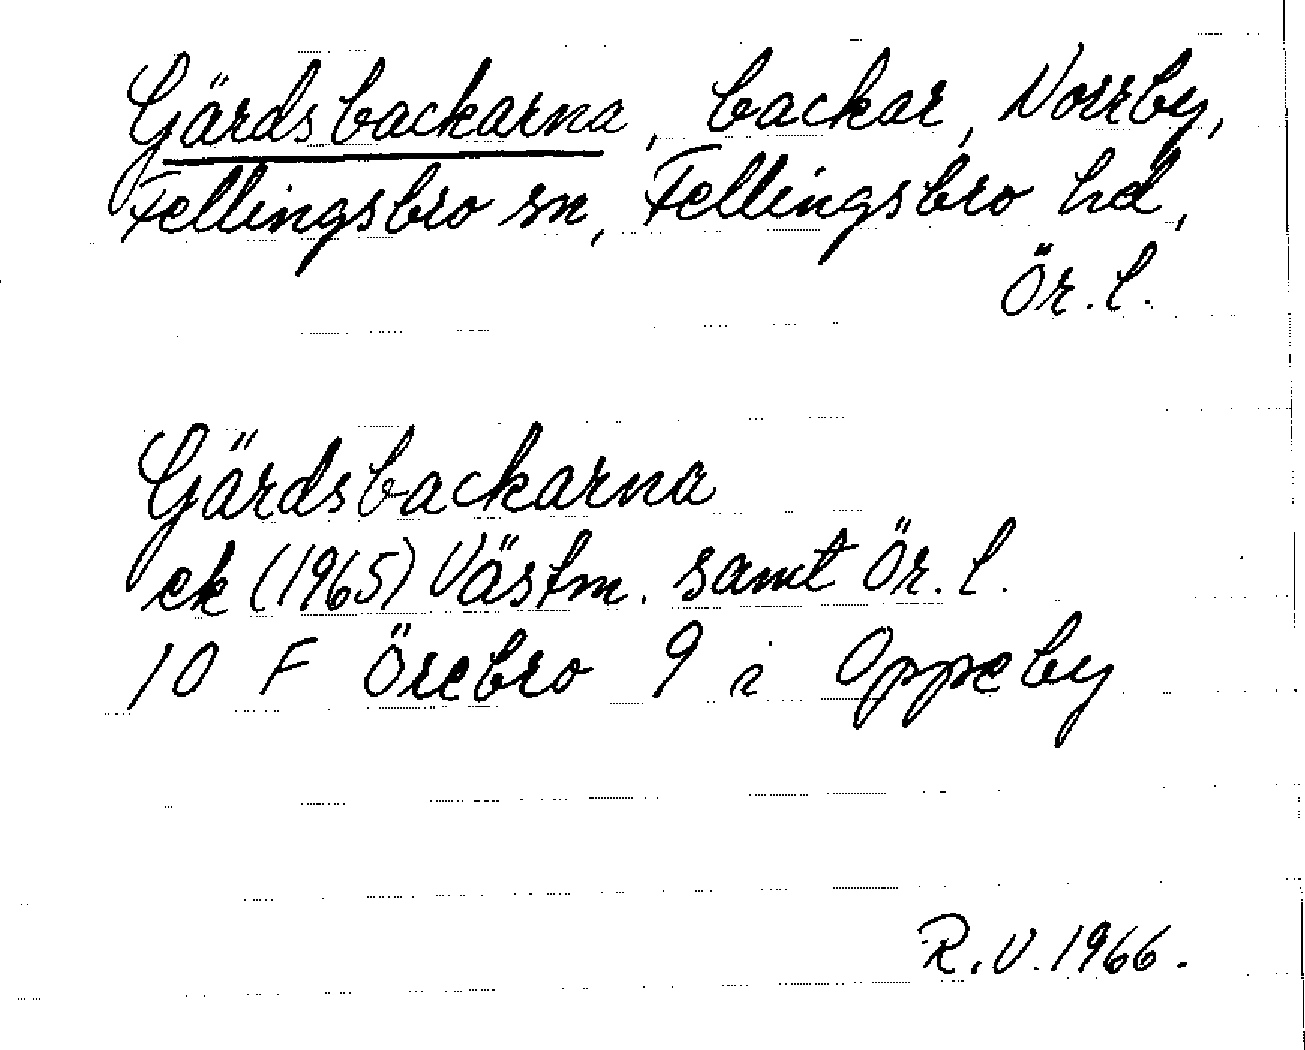 Gärdsbackarna, backar, Norrby,
Fellingsbro sn, Fellingsbro hd,
Ör. l.
Gärdsbackarna
ek (1965) Västm. samt Ör. l.
10 F Örebro 9 i Oppeby
R.V. 1966.